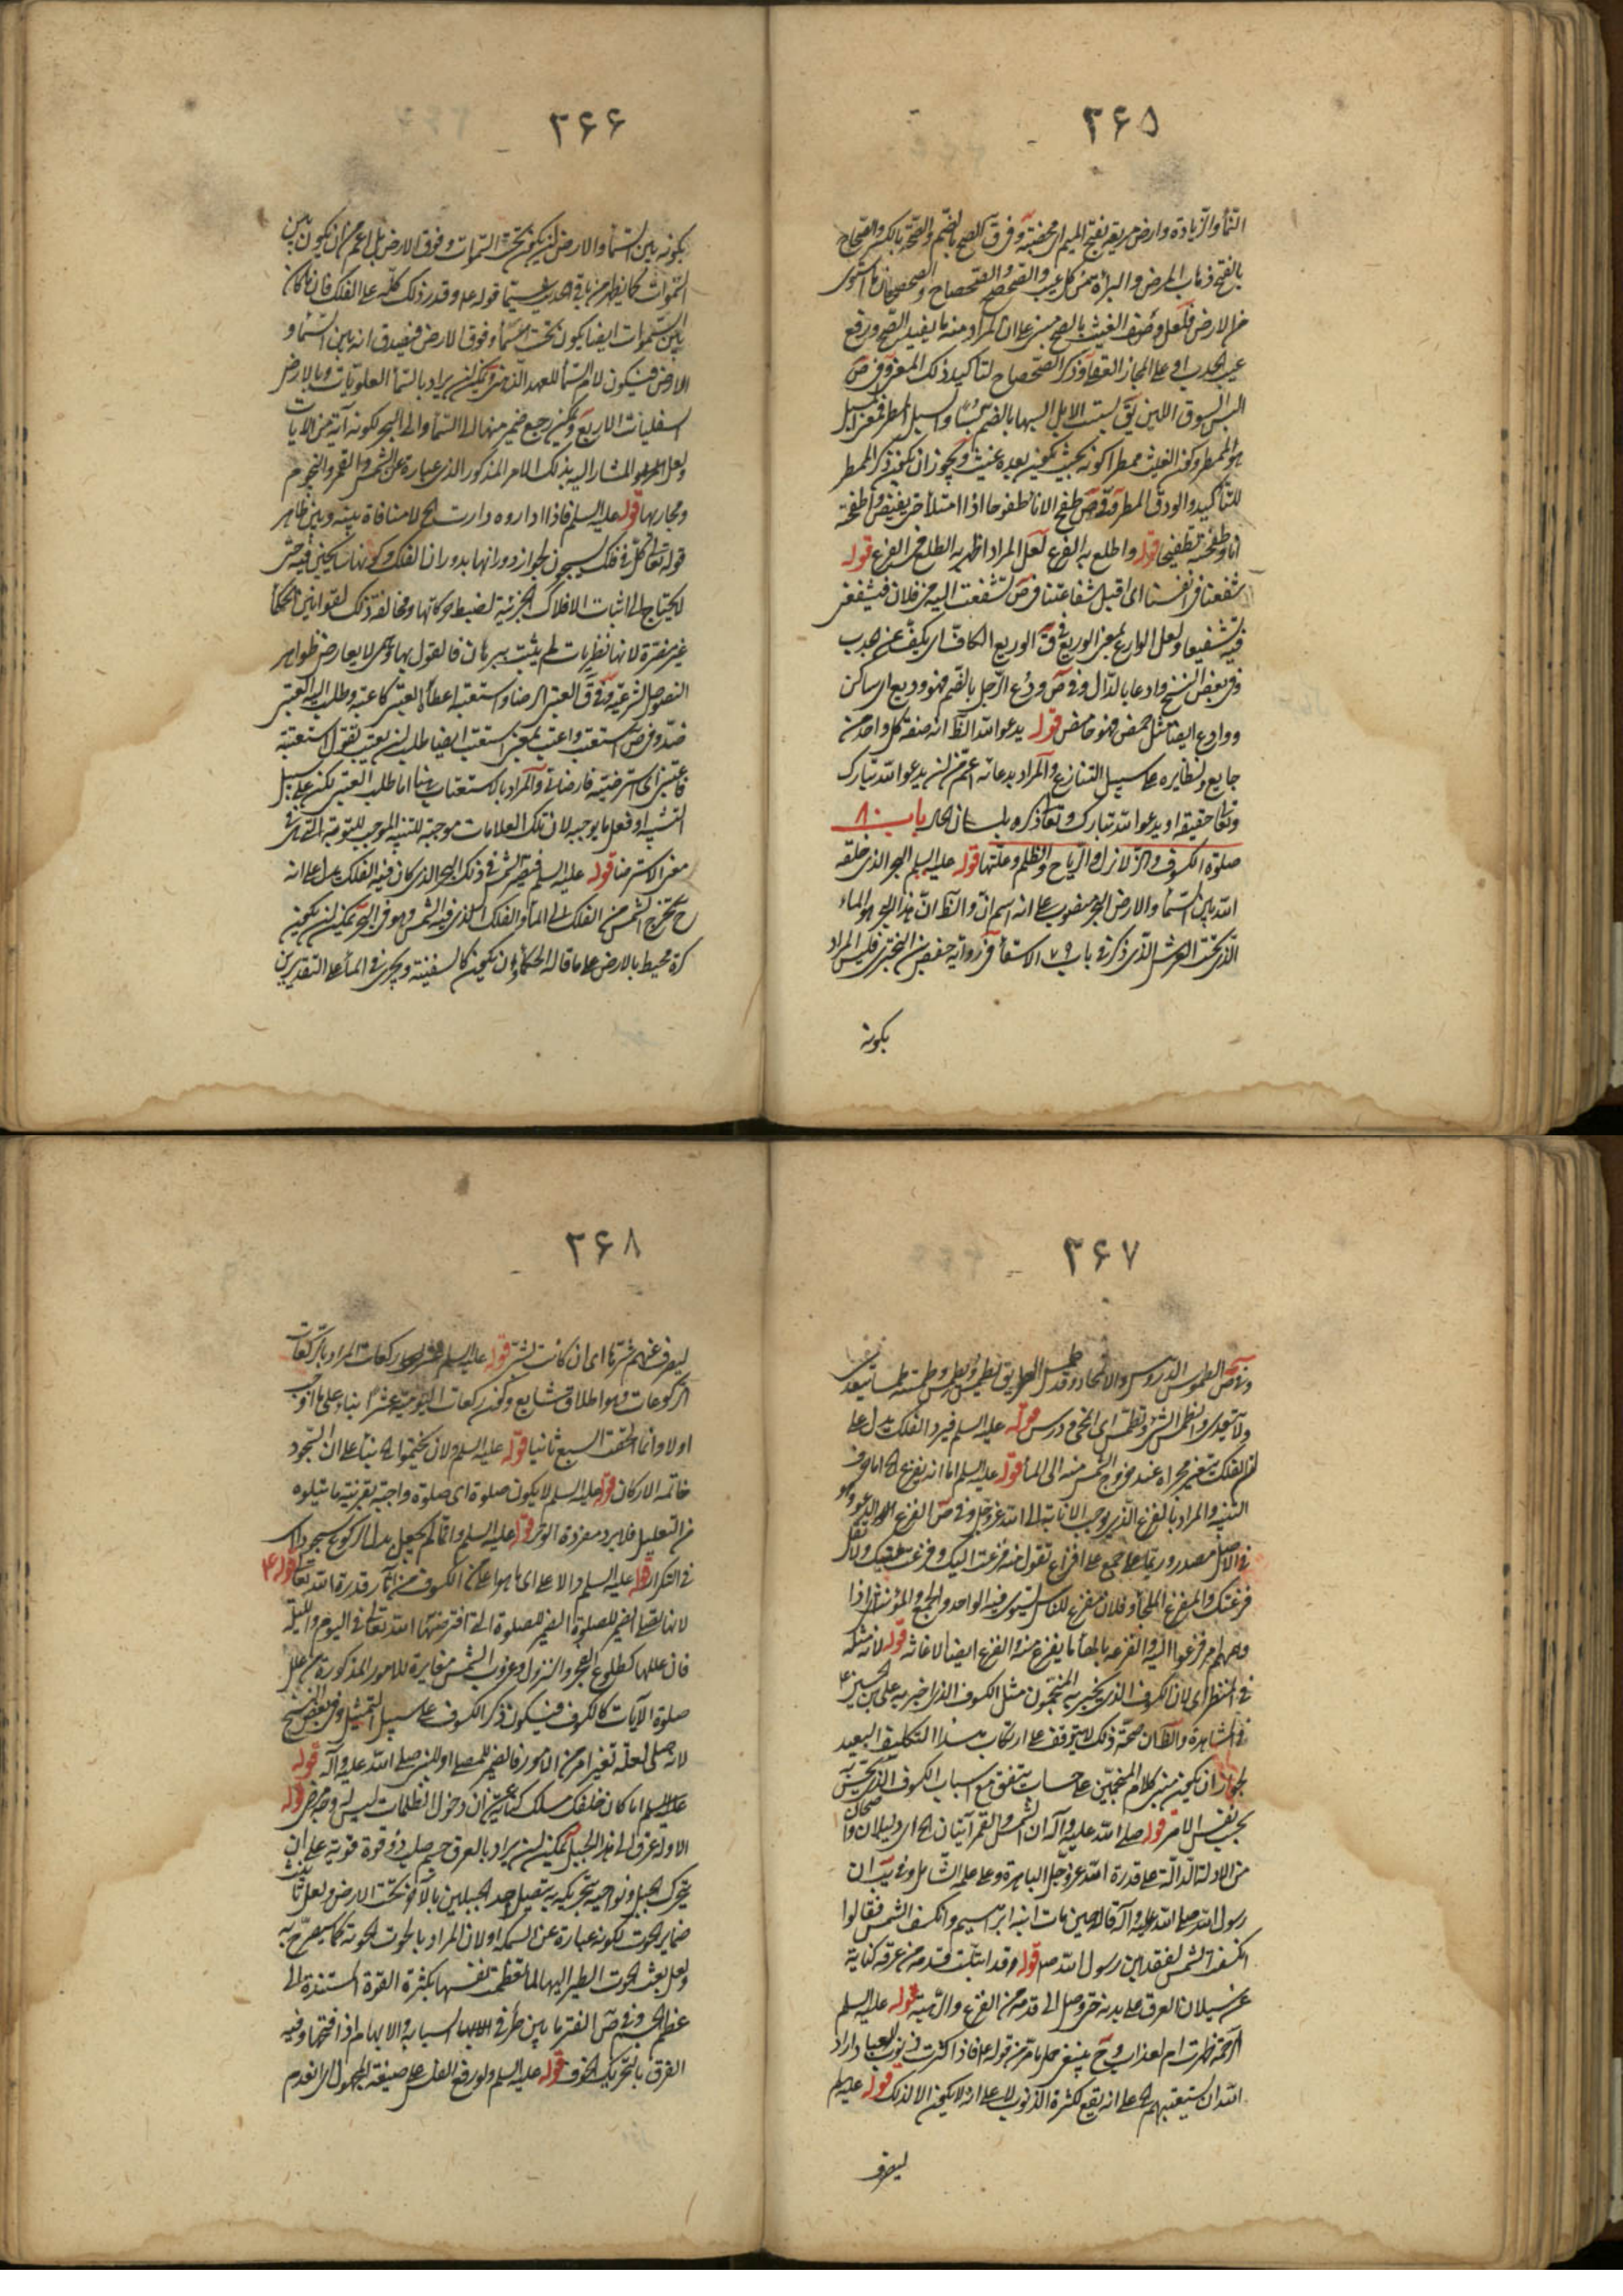 ۳۶۵
النمأ والزيادة وارض مريعة بفتح الميم اى مخصبة وفى ق الصح بالضم والصحة بالكسر والصحاح
بالفتح ذهاب المرض والبرأة من كل عيب والصحصح والصحصاح والصحصحان ما استوى
من الارض فلعل وصف الغيث بالصح مبنى على ان المراد منه ما يفيد الصح ورفع
عيب الجدب او على المجاز العقلى وذكر الصحصاح لتأكيد ذلك المعنى وفى ص
البس السوق اللين يق بسست الابل ابسها بالضم بسا والسبل المطر فمعنى المسبل
هو الممطر وكون الغيث ممطرا كونه بحيث يكون بعده غيث ويجوز ان يكون ذكر الممطر
للتأكيد والودق المطر وفى ص طفح الاناء طفوحا اذا امتلأ حتى يفيض واطفحته
انا وطفحته تطفيحا قوله واطلع به الفرع لعل المراد اظهر به الطلع من الفرع قوله
شفعنا فى انفسنا اى اقبل شفاعتنا فى ص تشفعت اليه من فلان فشفعنى
فيه تشفيعا ولعل الوارع بمعنى الوريع فى ق الوريع الكاف اى يكف عنه جدب
وفى بعض النسخ وادعا بالدال وفى ص ودع الرجل بالضم فهو وديع اى ساكن
ووادع ايضا مثل حمض فهو حامض قوله يدعو الله الظ انه صفة كل واحد من
جايع ونظايره على سبيل التنازع والمراد بدعائه اعم من ان يدعو الله تبارك
وتعالى حقيقة او يدعو الله تبارك وتعالى ذكره بلسان الحال باب ٨٠
صلوة الكسوف والزلازل والرياح والظلم وعلتها قوله عليه السلم البحر الذى خلقه
الله بين السمأ والارض البحر منصوب على انه اسم ان والظ ان هذا البحر هو الماء
الذى تحت العرش الذى ذكر فى باب ٧٩ الاستسقأ فى رواية حفص بن البخترى فليس المراد
بكونه
۳۶۶
بكونه بين السمأ والارض ان يكون تحت السموات وفوق الارض بل اعم من ان يكون بين
السموات كما يظهر من باقى الحديث سيما قوله ع وقدر ذلك كله على الفلك فان ما كان
بين السموات ايضا يكون تحت السمأ وفوق الارض فيصدق انه بين السمأ و
الارض فيكون لام السمأ للعهد الذهنى ويمكن ان يراد بالسمأ العلويات وبالارض
السفليات الاربع ويمكن رجع ضمير منها الى السمأ والى البحر لكونه آية من الآيات
ولعل المراد المشار اليه بذلك الامر المذكور الذى عبارة عن الشمس والقمر والنجوم
ومجاريها قوله عليه السلم فاذا اداروه دارت الخ لا منافاة بينه وبين ظاهر
قوله تعالى كل فى فلك يسبحون لجواز دورانها بدوران الفلك وكونها سابحين فيه حتى
لا يحتاج الى اثبات الافلاك الجزئية لضبط حركاتها ومخالفة ذلك لقوانين الحكمأ
غير مضرة لانها نظريات لم يثبت ببرهان فالقول بها وهمى لا يعارض ظواهر
النصوص الشرعية وفى ق العتبى الرضا واستعتبه اعطأه العتبى كاعتبه وطلب اليه العتبى
ضد وفى ص استعتب واعتب بمعنى استعتب ايضا طلب ان يعتب يقول استعتبته
فاعتبنى اى استرضيته فارضانى والمراد بالاستعتاب هنا اما طلب العتبى لكن على سبيل
التشبيه او فعل ما يوجبه لان تلك العلامات موجبة للتنبيه الموجب للتوبة التى هى فى
معنى الاسترضا قوله عليه السلم فيصير الشمس فى ذلك البحر الذى كان فيه الفلك يدل على انه
ح يخرج الشمس من الفلك الى المأ والفلك الذى فيه الشمس وهو فى البحر يمكن ان يكون
كرة محيط بالارض على ما قاله الحكمأ وان يكون كالسفينة ويجرى فى المأ على التقديرين
۳۶۷
وفى ص الطموس الدروس والانمحأ وقد طمس الطريق يطمس ويطمس وطمسته طمسا يتعدى
ولا يتعدى وانطمس الشئ وتطمس اى انمحى ودرس قوله عليه السلم فيرد الفلك يدل على
ان الفلك يتغير مجراه عند خروج الشمس منه الى المأ قوله عليه السلم اما انه يفزع الخ اما حرف
التنبيه والمراد بالفزع الذى يوجب الانابة الى الله عز وجل وفى ص الفزع الذعر وهو
فى الاصل مصدر وربما جمع على افزاع تقول منه فزعت اليك وفزعت منك ولا تقل
فزعتك والمفزع الملجأ وفلان مفزع للناس يستوى فيه الواحد والجمع والمؤنث اى اذا
دهمهم امر فزعوا اليه والفزعة بالهأ ما يفزع منه والفزع ايضا الاغاثة قوله لانه مثله
فى المنظر اى لان الكسوف الذى يخبر به المنجمون مثل الكسوف الذى اخبر به على بن الحسين ع
فى المشاهرة والظ ان صحة ذلك لا يتوقف على ارتكاب هذا التكليف البعيد
لجواز ان يكون مبنى كلام المنجمين على حساب يتفق مع اسباب الكسوف الذى يتحقق
بحسب نفس الامر قوله صلى الله عليه وآله ان الشمس والقمر آيتان الخ اى دليلان واضحان
من الادلة الدالة على قدرة الله عز وجل الباهرة وعلى علمه الشامل وفى يب ان
رسول الله صلى الله عليه وآله قاله حين مات ابنه ابرهيم وانكسفت الشمس فقالوا
انكسفت الشمس لفقد ابن رسول الله ص قوله وقد ابتلت قدمه من عرقه كناية
عن سيلان العرق على بدنه حتى وصل الى قدمه من الفزع والرهبة قوله عليه السلم
الرحمة ظهرت ام لعذاب وح ينبغى حمل ما مر من قوله ع فاذا كثرت ذنوب العباد واراد
الله ان يستعتبهم الخ على انه يقع لكثرة الذنوب لا على انه لا يكون الا لذلك قوله عليه السلم
ليصرف
۳۶۸
ليصرف عنهم شرها اى ان كانت لشر قوله عليه السلم عشر ركعات المراد بالركعات
الركوعات وهو اطلاق شايع وكون ركعات اليومية عشرا بناء على ما اوجب
اولا وانما الحقت السبع ثانيا قوله عليه السلم ولان يختموا الخ بنأ على ان السجود
خاتمة الاركان قوله عليه السلم لا يكون صلوة اى صلوة واجبة بقرينة ما يتلوه
من التعليل فلا يرد مفردة الوتر قوله عليه السلم وانما لم يجعل بدل الركوع سجود اى
فى التكرار قوله عليه السلم والا على اى ما هو اعلى من الكسوف من آثار قدرة الله تعالى قوله ع
لانها لعلة الضمير للصلوة الضمير للصلوة التى افترضها الله تعالى فى اليوم والليلة
فان عللها كطلوع الفجر والزوال وغروب الشمس مغايرة للامور المذكورة من علل
صلوة الآيات كالكسوف فيكون ذكر الكسوف على سبيل التمثيل وفى بعض النسخ
لانه صلى لعلة تغير امر من الامور فالضمير للمصلى او للنبى صلى الله عليه وآله قوله
عليه السلم اما كان خلفك مسلك كناية عن ان دخول الظلمات ليس له وجه مرضى قوله
الا وله عرق الى هذا الجبل يمكن ان يراد بالعرق جسم صلب ذو قوة قوية على ان
يتحرك الجبل ونواحيه بتحريكه به يتصل احد الجبلين بالآخر تحت الارض ولعل تأنيث
ضماير الحوت لكونه عبارة عن السمكة او لان المراد بالحوت الحوتة كما سيصرح به
ولعل بعث الحوت الطير اليها لما تعظمت نفسها بكثرة القوة المستندة الى
عظم الجسم وفى ص الفتر ما بين طرفى السبابة والابهام اذا فتحتهما وفيه
الفرق بالتحريك الخوف قوله عليه السلم ولو رفع الفلس على صيغة المجهول اى انعدم